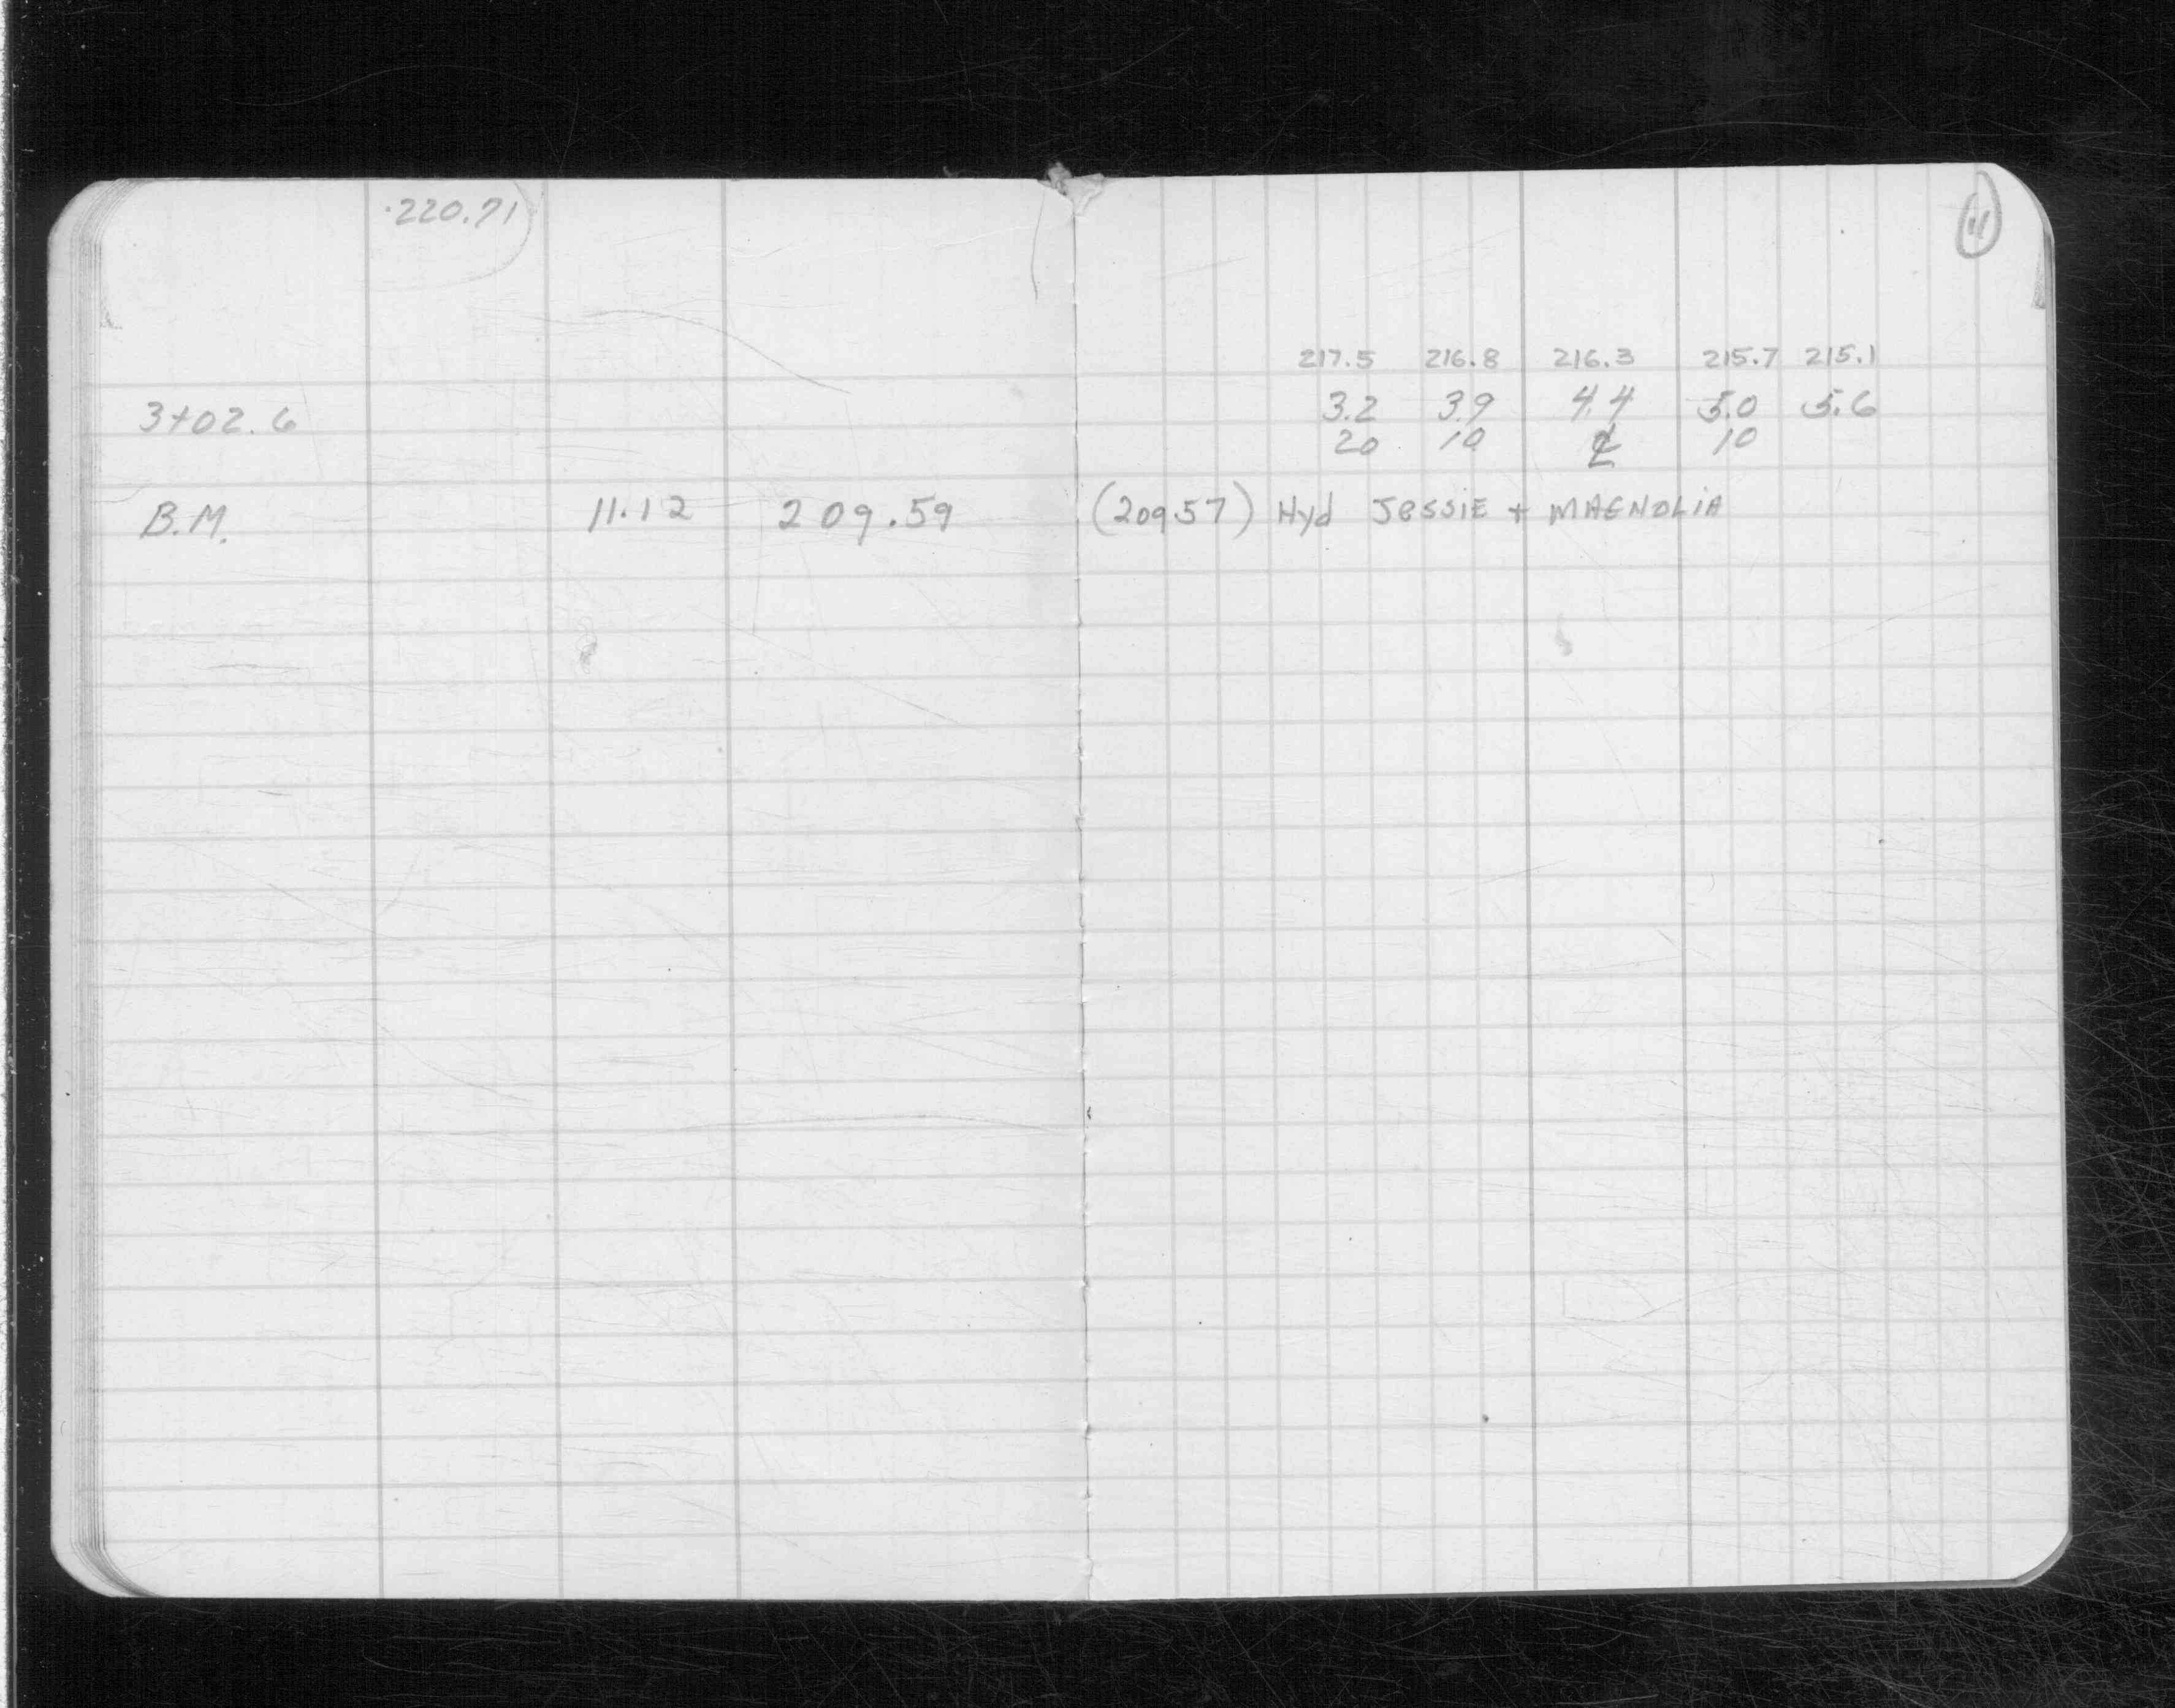 220.71
217.5 216.8 216.3 215.7 215.1
3+02.6 3.2 3.9 4.4 5.0 5.6
20 10 ℄ 10
B.M. 11.12 209.59 (209.57) Hyd Jessie + MAGNOLIA